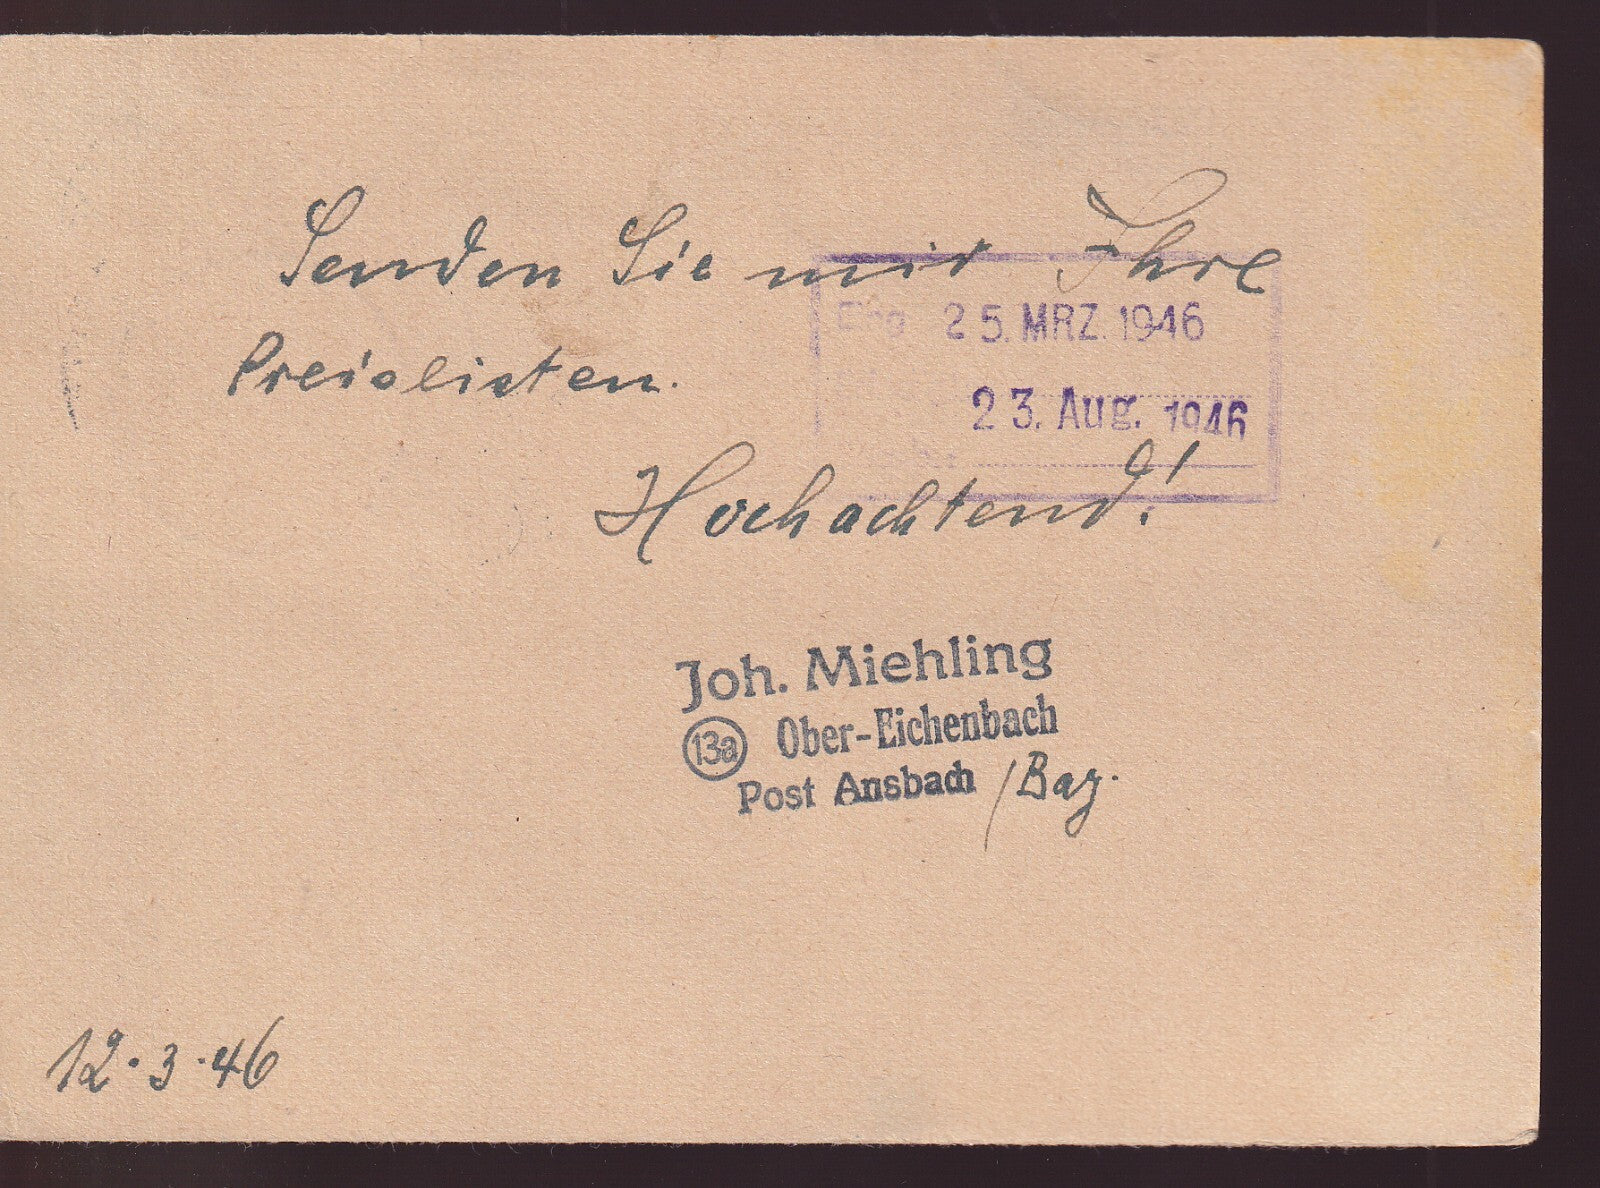 Senden Sie mir Ihre
Eing. 25. MRZ. 1946
Preislisten.
23. Aug. 1946
Hochachtend!
Joh. Miehling
13a Ober-Eichenbach
Post Ansbach /Bay.
12.3.46